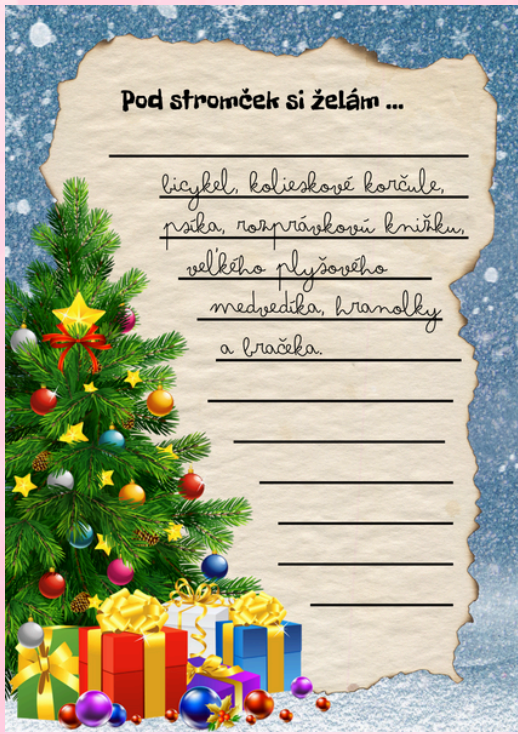 Pod stromček si želám ...
bicykel, kolieskové korčule,
psíka, rozprávkovú knižku,
veľkého plyšového
medvedíka, hranolky
a bračeka.